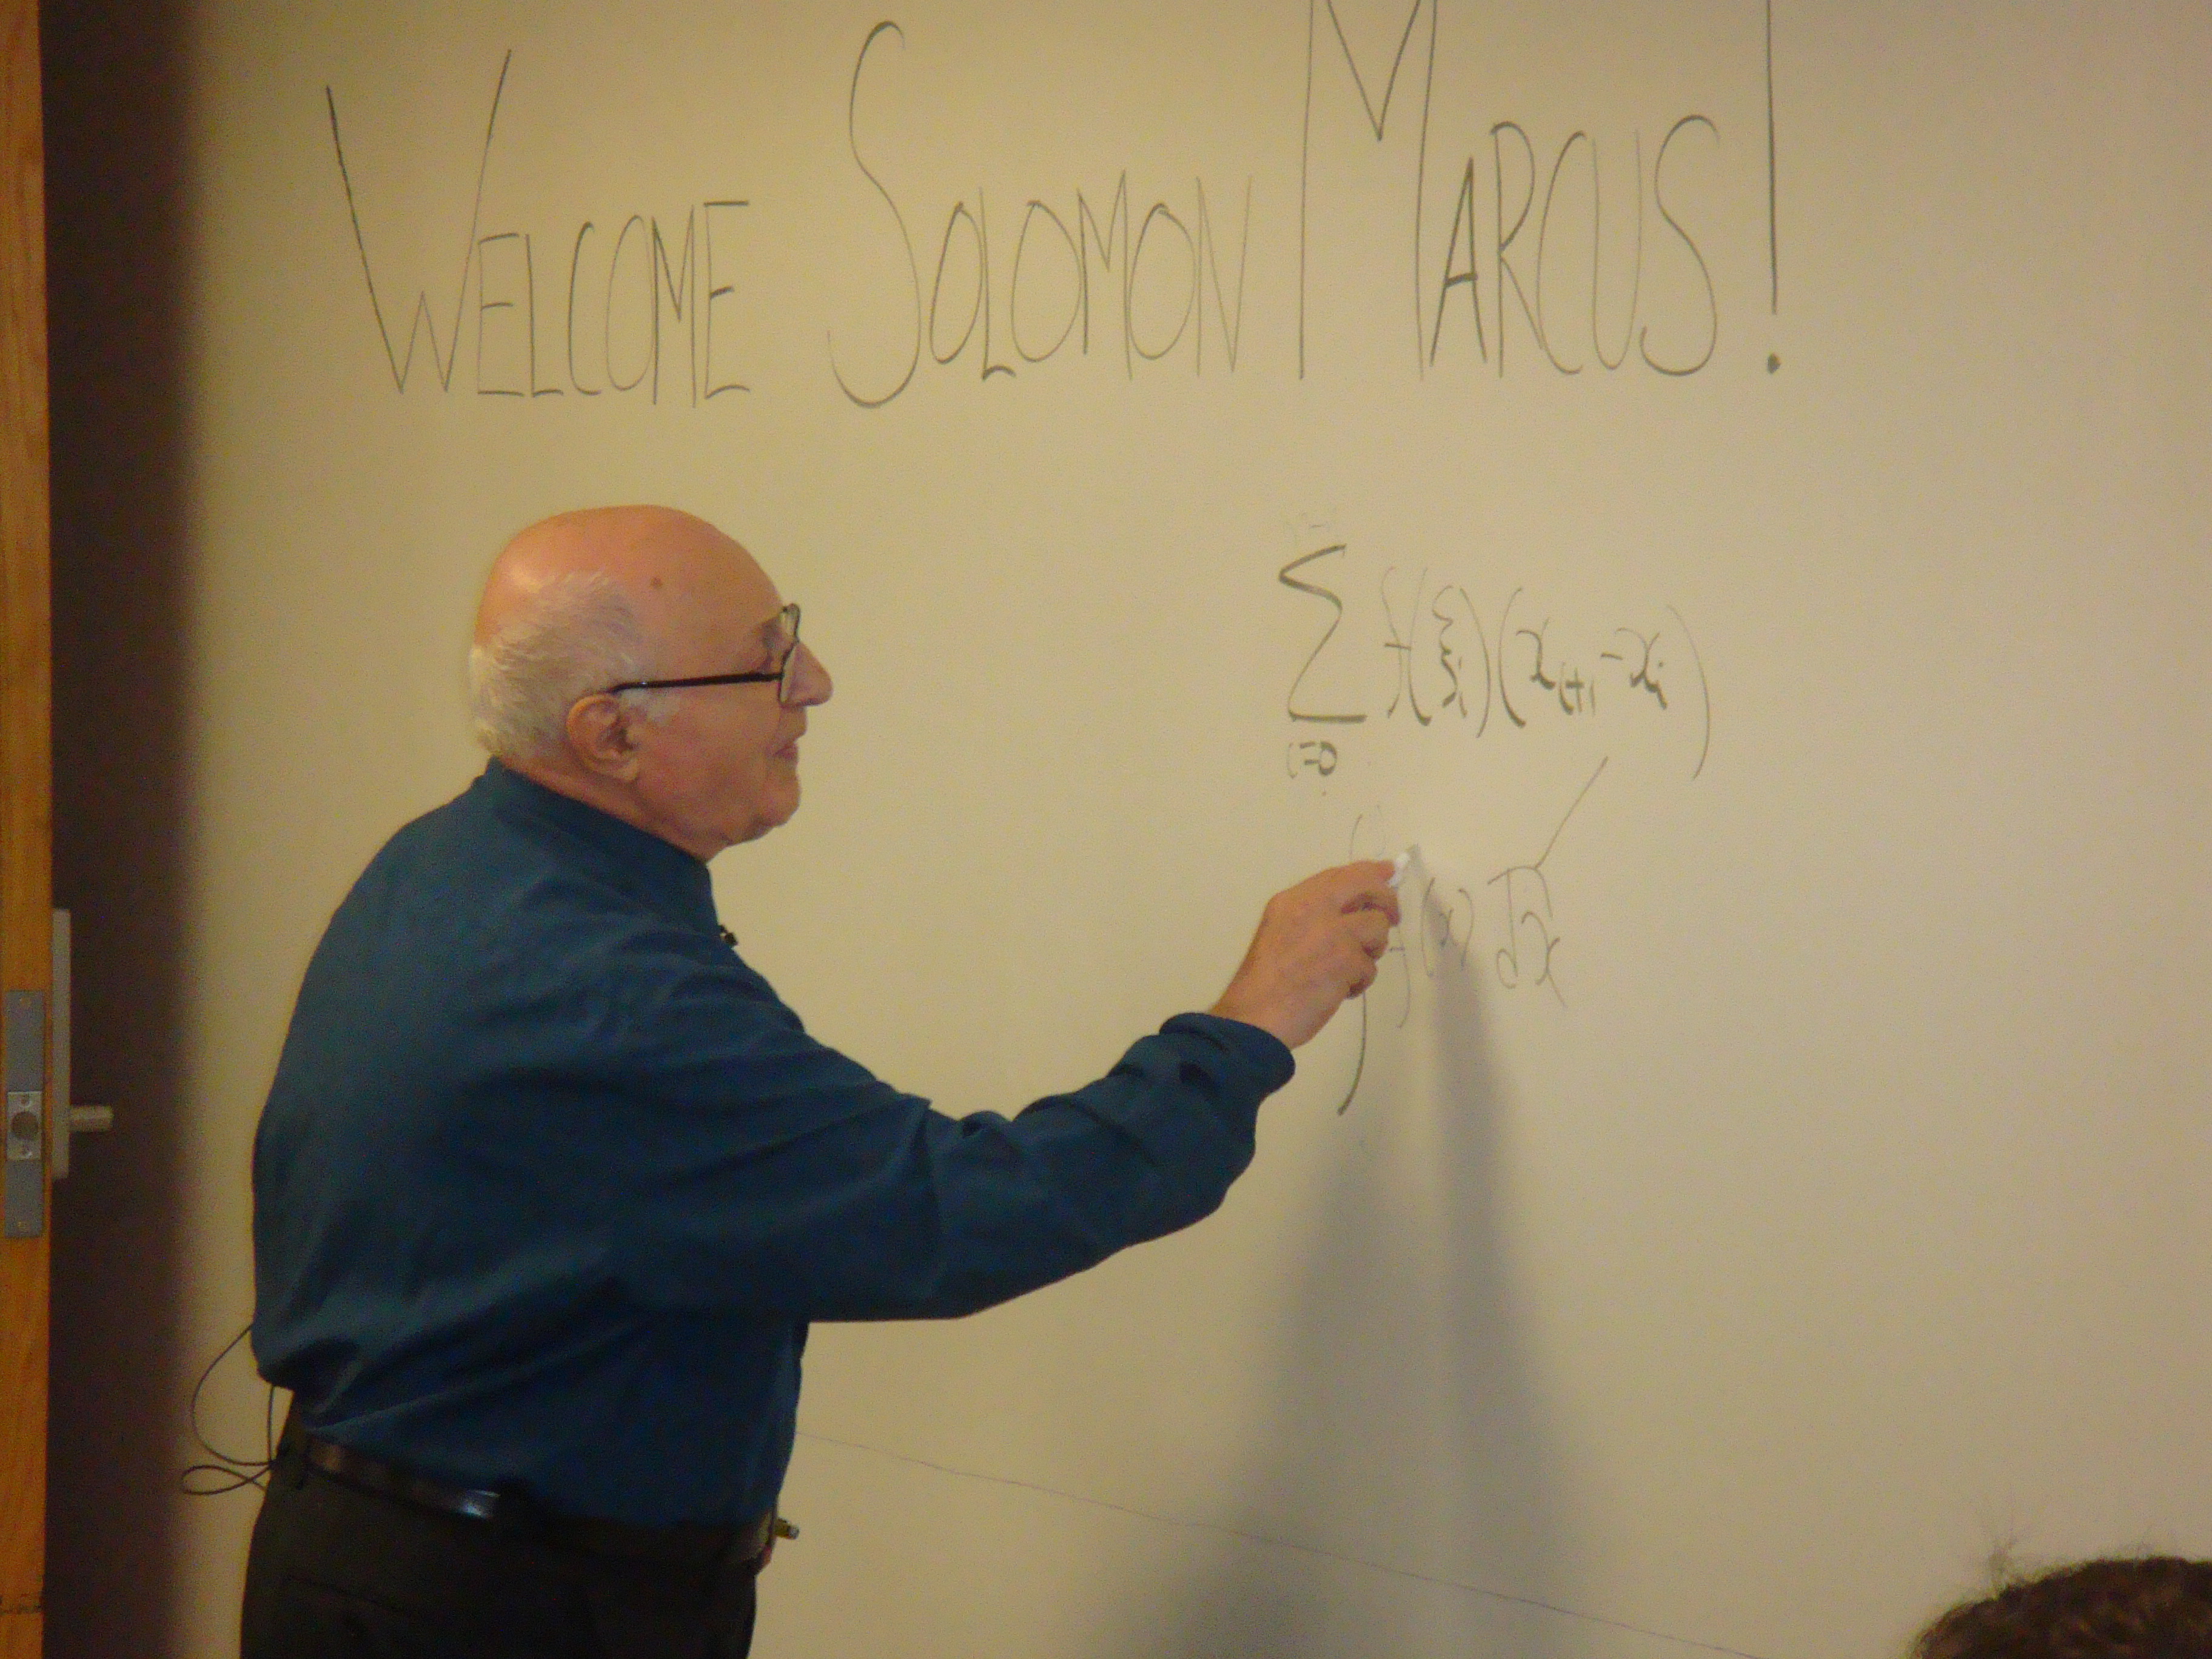 WELCOME SOLOMON MARCUS!
∑ f(ξi)(xi+1 - xi)
i=0
∫ f(x) dx